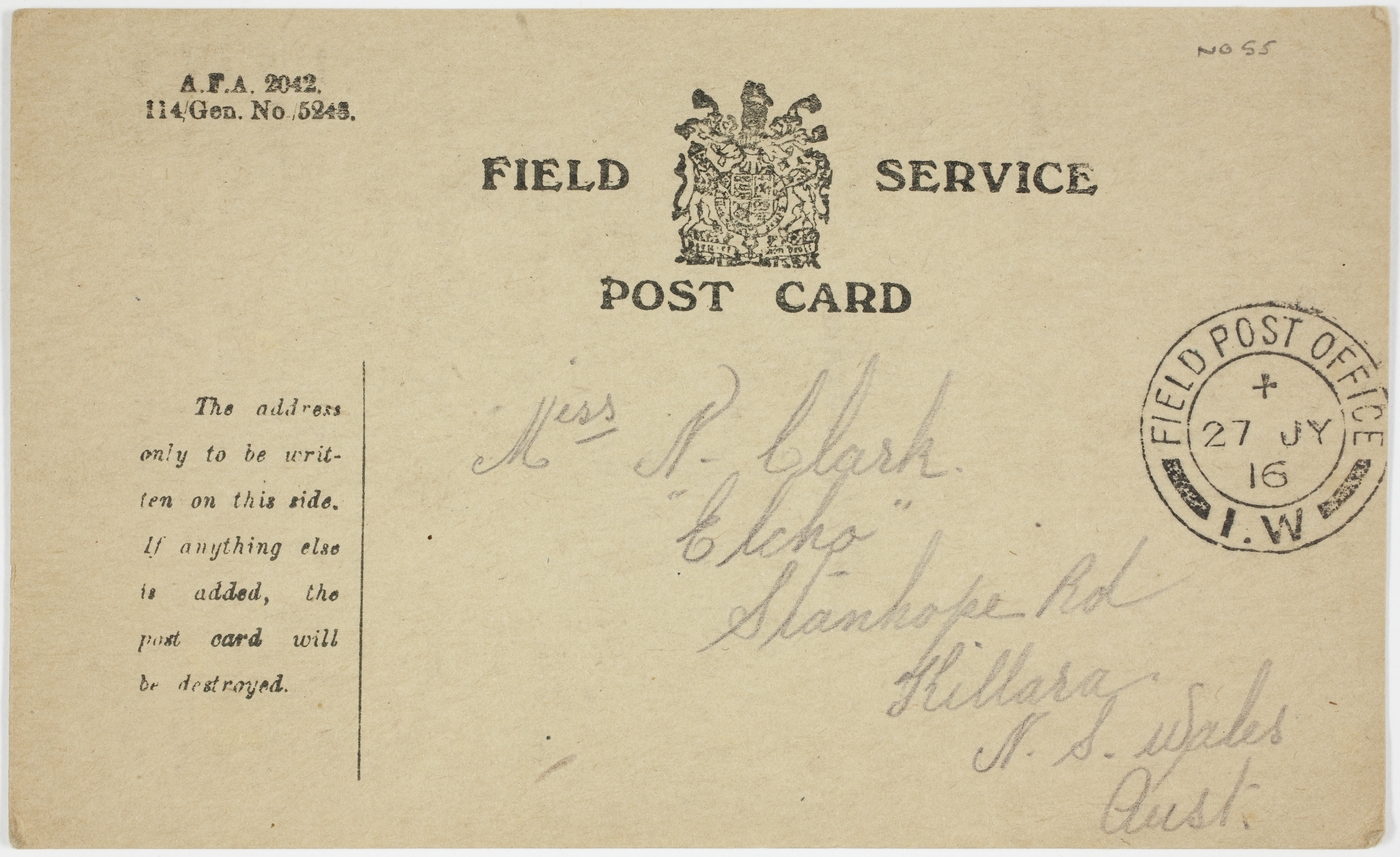 NO 55
A.F.A. 2042.
114/Gen. No./5248.
FIELD SERVICE
POST CARD
FIELD POST OFFICE
27 JY
16
I.W
The address
only to be writ-
ten on this side.
If anything else
is added, the
post card will
be destroyed.
Miss N. Clark.
"Elcho"
Stanhope Rd
Killara
N. S. Wales
Aust.